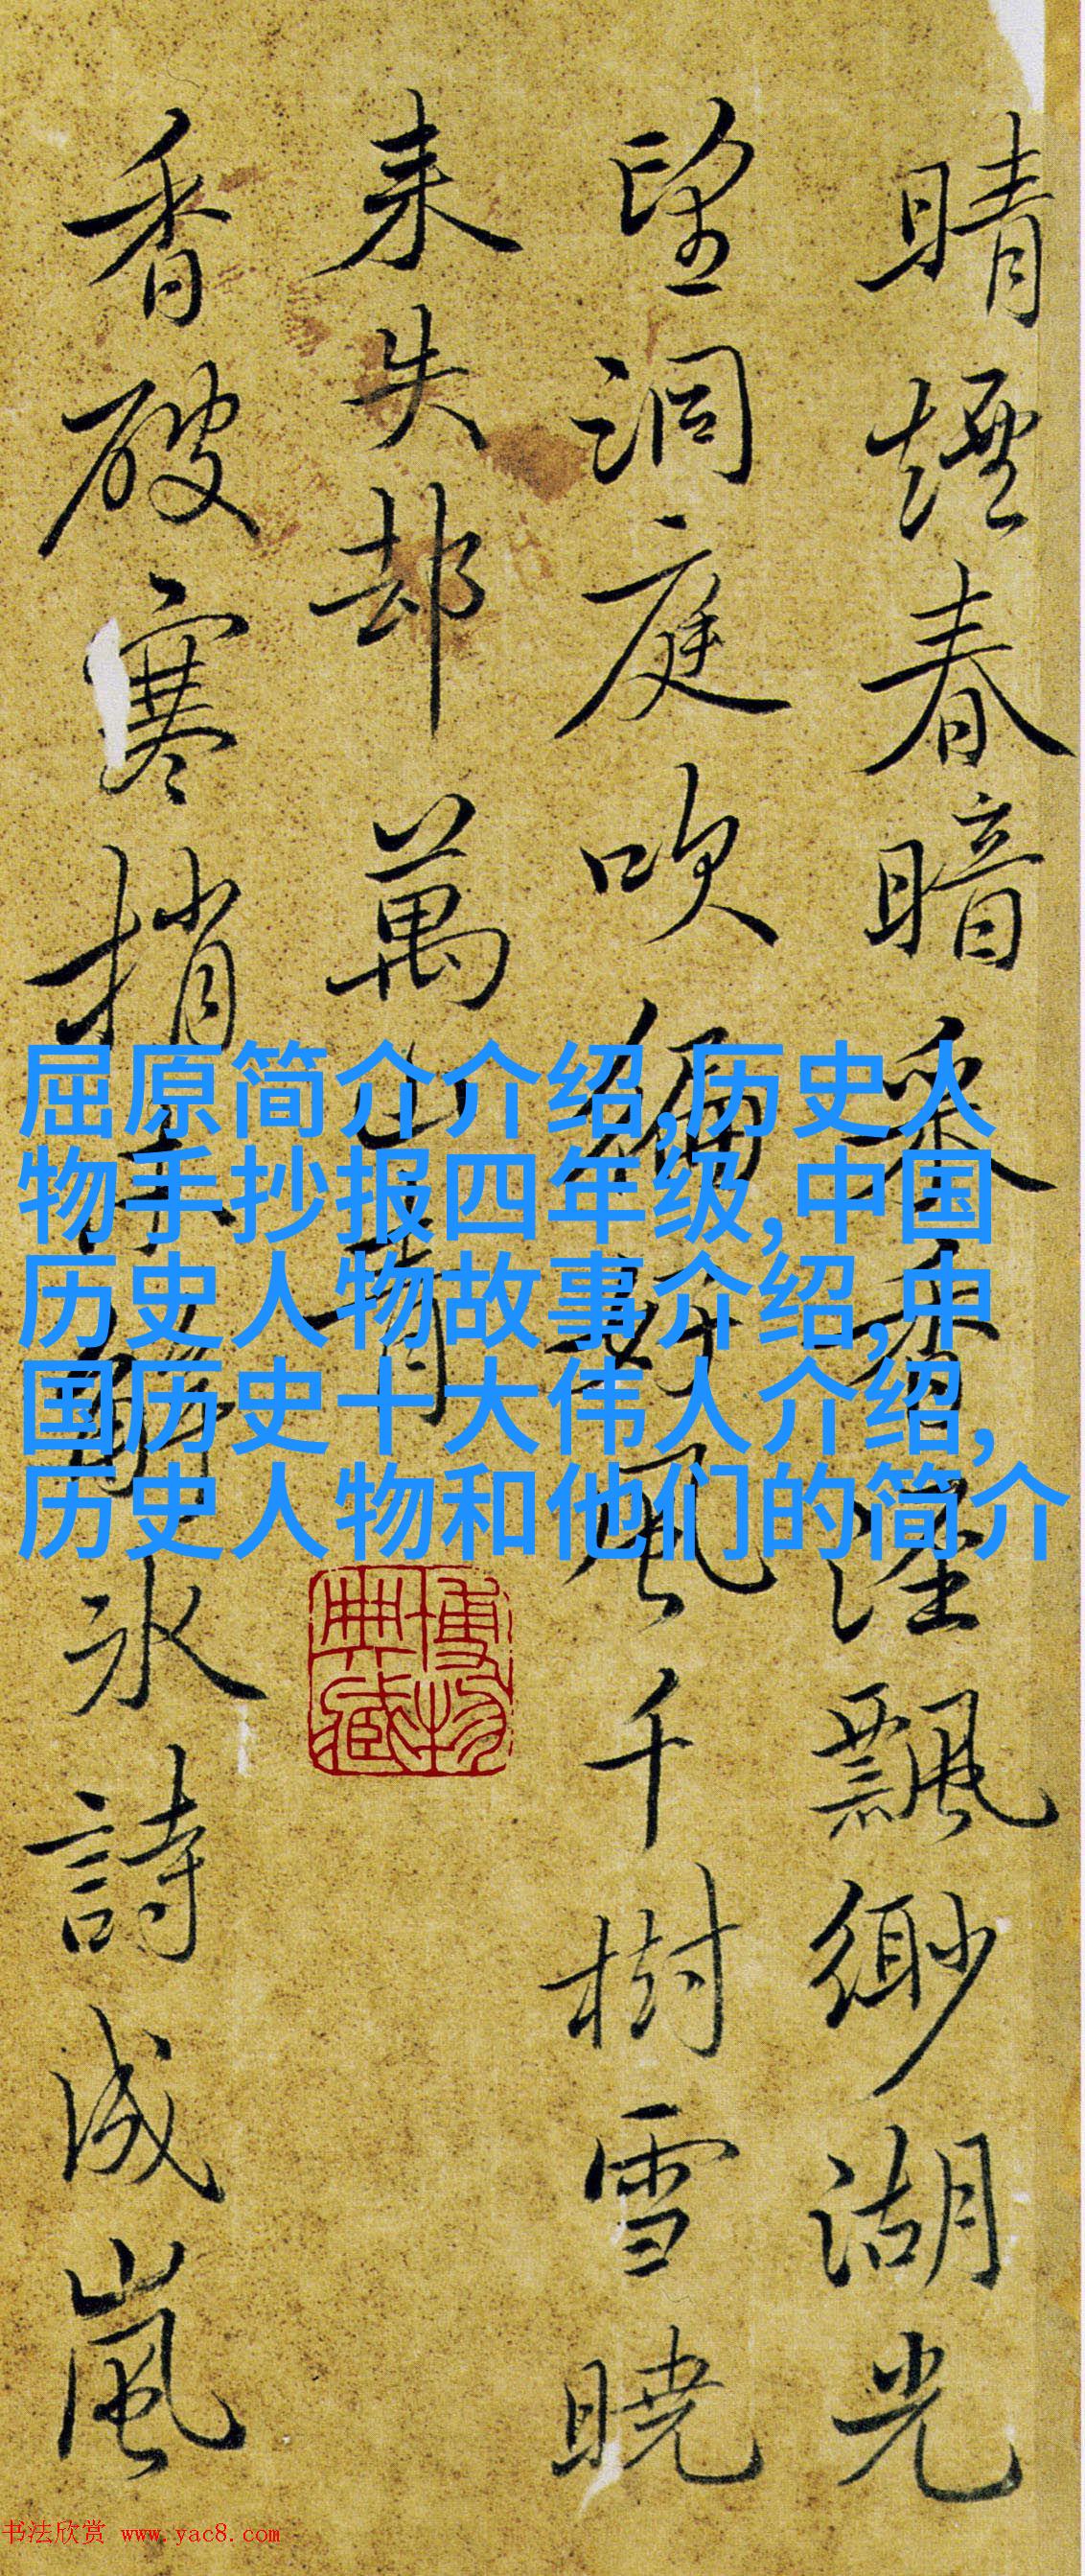 晴煙春暗乘香徑飄緲湖光
望洞庭吹編野風千樹雪曉
来失却萬山青
香破寒梢解冰詩成嵐
屈原简介介绍,历史人
物手抄报四年级,中国
历史人物故事介绍,中
国历史十大伟人介绍,
历史人物和他们的简介
博物
典藏
书法欣赏 www.yac8.com